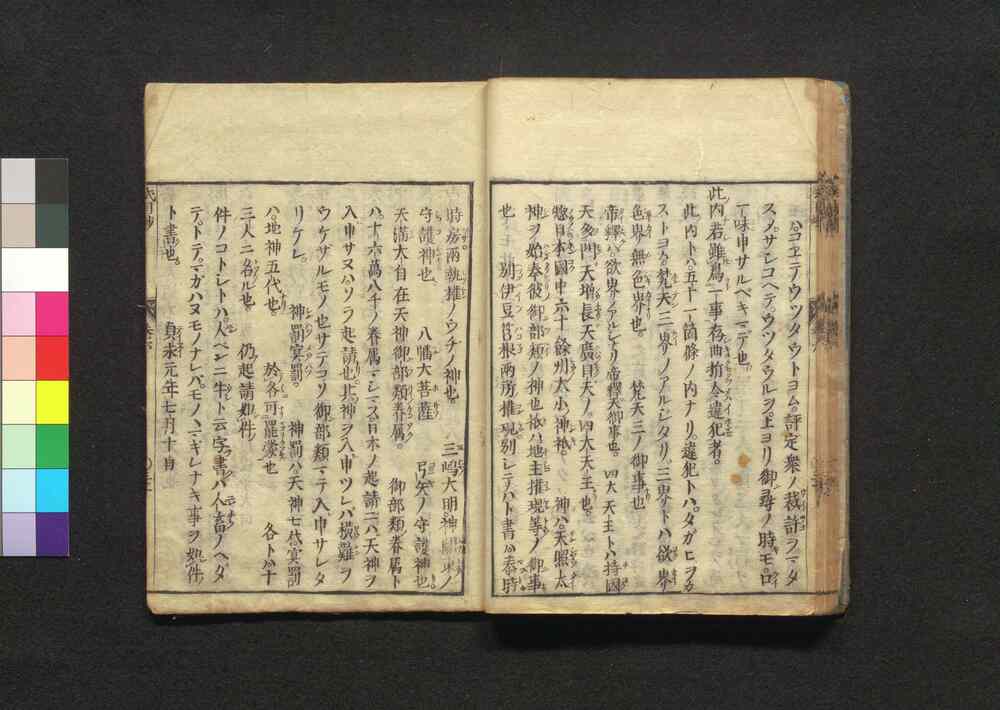 ハコヱテウツタウトヨム。評定衆ノ裁許ヲマタ
スノサシコヘテ。ウツタウルヲ。上ヨリ御尋ノ時モ。口
一味申サルベキニテ也。
此内若雖為一事。存曲折令違犯者。
此内トハ五十一箇條ノ内ナリ。違犯トハ。タガヒヲカ
ストヨム。梵天三界ノアルジタリ。三界トハ欲界
色界無色界也。 梵天三ノ御事也
帝釋ハ欲界ノアルジナリ帝釋天御事也。 四大天王トハ持國
天多門天増長天廣目天ノ。四大天王也。
惣日本國中六十餘州大小神祇。 神ハ天照太
神ヲ始奉彼御部類ノ神也祇ハ地主権現等ノ御事
也 別伊豆筥根両所権現別シテハト書ハ泰時
時房両執権ノウチノ神也 三嶋大明神 関東ノ
守護神也 八幡大菩薩 弓矢ノ守護神也
天満大自在天神御部類眷属。 御部類眷属ト
ハ。十六萬八千ノ眷属マシマス日本ノ起請ニハ天神ヲ
入申サヌハソラ起請也此神ヲ入申ツレバ横難ヲ
ウケザルモノ也サテコソ御部類マテ入申サレタ
リケレ。 神罰冥罰。 神罰ハ。天神七代冥罰
ハ。地神五代也。 於各可罷蒙也 各トハ十
三人ニ名ル也 仍起請如件。
件ノコトシトハ人ベンニ牛ト云字書ハ人畜ノヘダ
テ。トテ。マガハヌモノナレバモノヽマギレナキ事ヲ如件
ト書也。 貞永元年七月十日